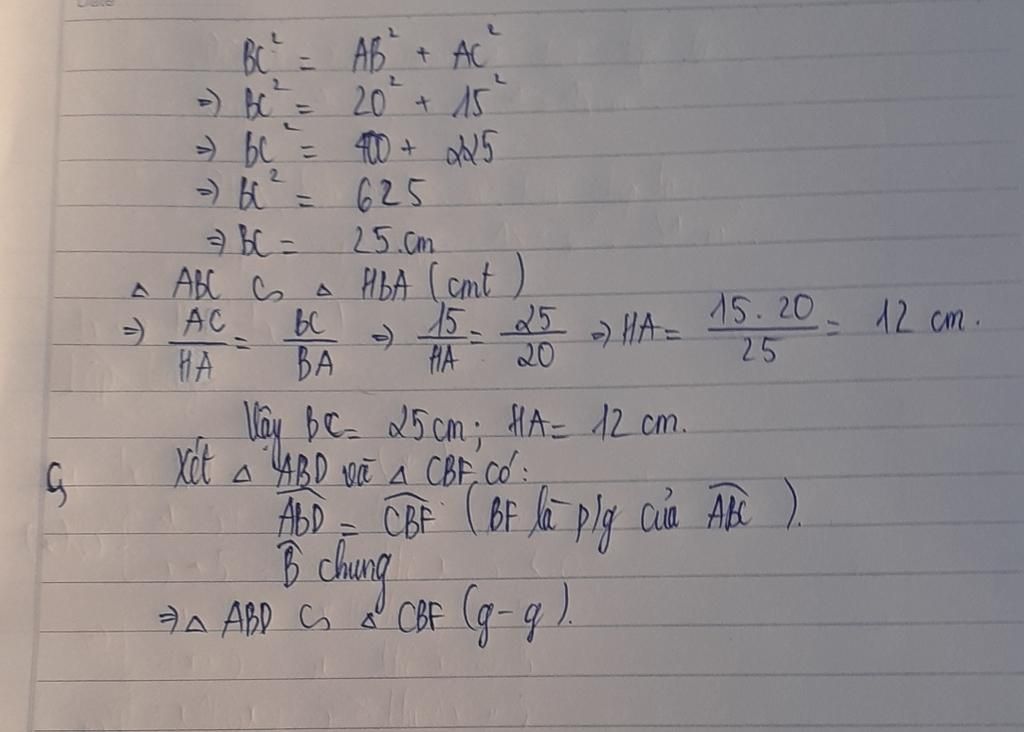 Date
BC² = AB² + AC²
⇒ BC² = 20² + 15²
⇒ BC² = 400 + 225
⇒ BC² = 625
⇒ BC = 25.cm
△ ABC ∽ △ HBA (cmt)
⇒ AC/HA = BC/BA ⇒ 15/HA = 25/20 ⇒ HA = 15.20/25 = 12 cm.
Vậy BC = 25cm; HA = 12 cm.
c, Xét △ ABD và △ CBF có:
\widehat{ABD} = \widehat{CBF} (BF là p/g của \widehat{ABC}).
\widehat{B} chung
⇒ △ ABD ∽ △ CBF (g-g).